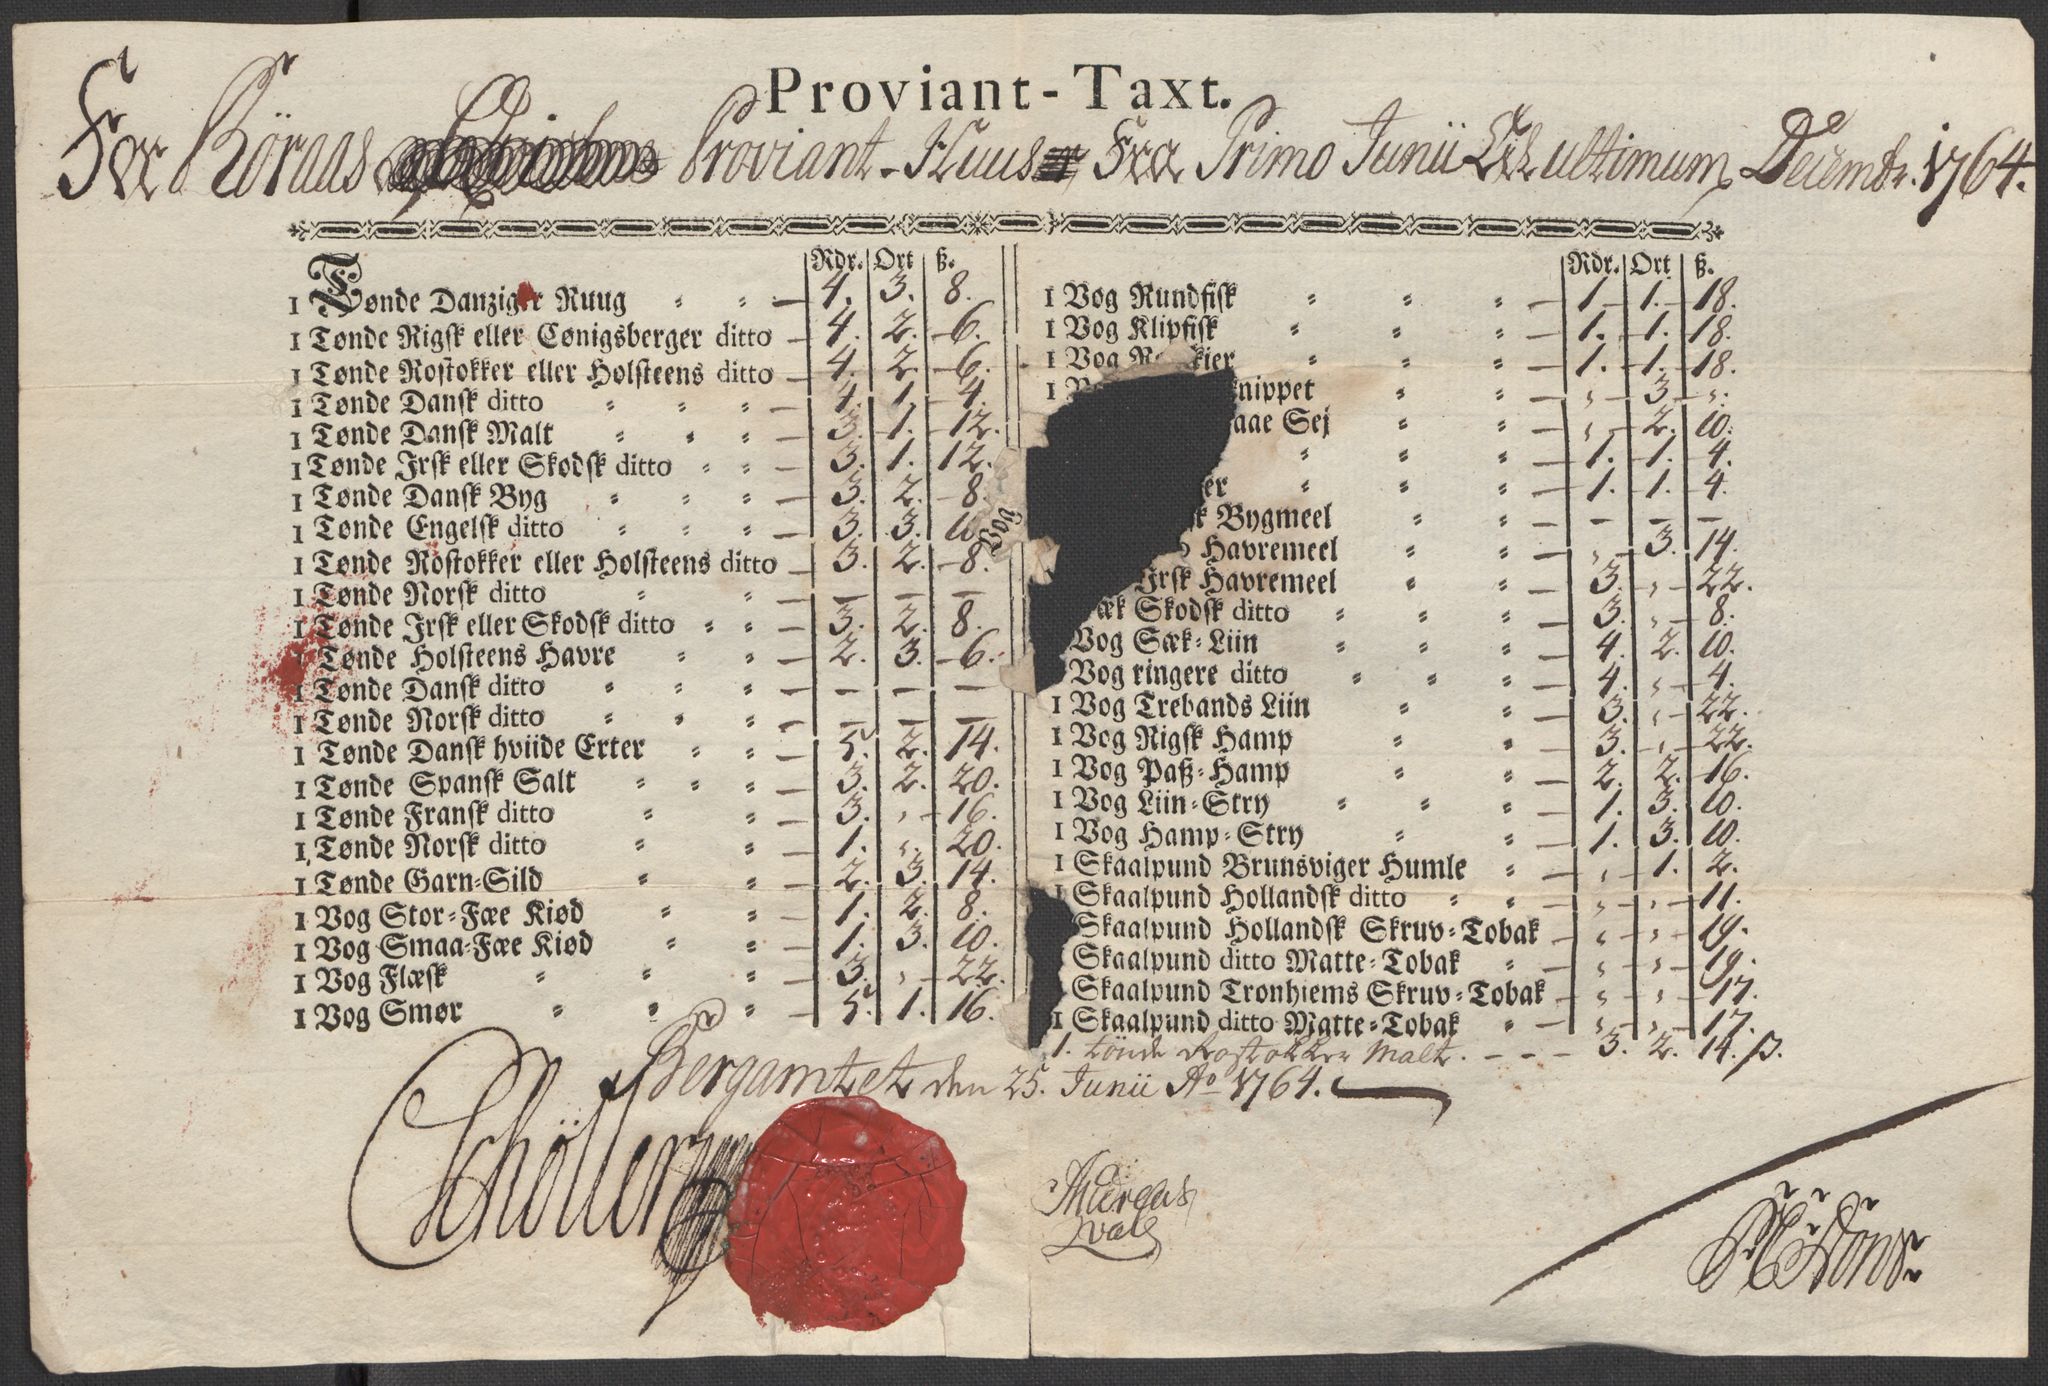 Proviant-Taxt.
For Röraas Proviant-Huus Fra Primo Junii Til ultimum Decembr. 1764.
Rdr. Ort ß.
1 Tønde Danziger Ruug 4. 3. 8.
1 Tønde Rigsk eller Cønigsberger ditto 4. 2. 6.
1 Tønde Rostokker eller Holsteens ditto 4. 2. 6.
1 Tønde Dansk ditto 4. 1. 4.
1 Tønde Dansk Malt 3. 1. 12.
1 Tønde Jrsk eller Skodsk ditto 3. 1. 12.
1 Tønde Dansk Byg 3. 2. 8.
1 Tønde Engelsk ditto 3. 3. 10.
1 Tønde Rostokker eller Holsteens ditto 3. 2. 8.
1 Tønde Norsk ditto — — —
1 Tønde Jrsk eller Skodsk ditto 3. 2. 8.
1 Tønde Holsteens Havre 2. 3. 6.
1 Tønde Dansk ditto — — —
1 Tønde Norsk ditto — — —
1 Tønde Dansk hviide Erter 5. 2. 14.
1 Tønde Spansk Salt 3. 2. 20.
1 Tønde Fransk ditto 3. „ 16.
1 Tønde Norsk ditto 1. „ 20.
1 Tønde Garn-Sild 2. 3. 14.
1 Vog Stor-Fæe Kiød 1. 2. 8.
1 Vog Smaa-Fæe Kiød 1. 3. 10.
1 Vog Flæsk 3. „ 22.
1 Vog Smør 5. 1. 16.
Rdr. Ort ß.
1 Vog Rundfisk 1. 1. 18.
1 Vog Klipfisk 1. 1. 18.
1 Vog 1. 1. 18.
1 knippet „ 3. „
Sej „ 2. 10.
1. 1. 4.
1. 1. 4.
Bygmeel — — —
Havremeel „ 3. 14.
Jrsk Havremeel 3. „ 22.
Sæk Skodsk ditto 3. „ 8.
Vog Sæk-Liin 4. 2. 10.
Vog ringere ditto 4. „ 4.
1 Vog Trebands Liin 3. „ 22.
1 Vog Rigsk Hamp 3. „ 22.
1 Vog Paß-Hamp 2. 2. 16.
1 Vog Liin-Stry 1. 3. 10.
1 Vog Hamp-Stry 1. 3. 10.
1 Skaalpund Brunsviger Humle „ 1. 2.
1 Skaalpund Hollandsk ditto „ „ 11.
Skaalpund Hollandsk Skruv-Tobak „ „ 19.
Skaalpund ditto Matte-Tobak „ „ 19.
Skaalpund Tronhiems Skruv-Tobak „ „ 17.
1 Skaalpund ditto Matte-Tobak „ „ 17.
1. tönde Rostokker Malt. 3. 2. 14. ß.
Bergamtet den 25. Junii Ao 1764.
Schöller
Andreas